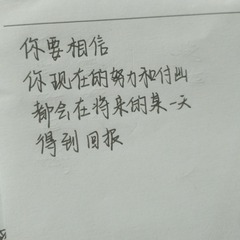 你要相信
你现在的努力和付出
都会在将来的某一天
得到回报